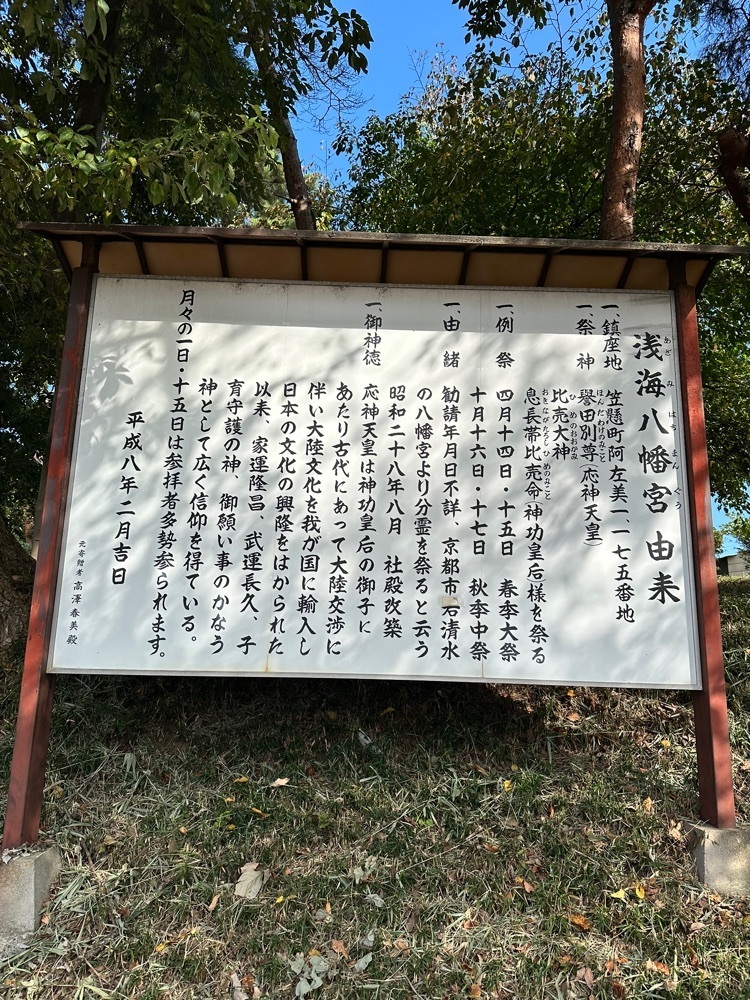 浅海八幡宮由来
めざみはちまんぐう
一、鎮座地　笠懸町阿左美一、一七五番地
一、祭　神　誉田別尊(応神天皇)
ほんだわけのみこと
比売大神
ひめのおおかみ
息長帯比売命(神功皇后)様を祭る
おきながたらしひめのみこと
一、例　祭　四月十四日・十五日　春季大祭
十月十六日・十七日　秋季中祭
一、由　緒　勧請年月日不詳、京都市石清水
の八幡宮より分霊を祭ると云う
昭和二十八年八月　社殿改築
一、御神徳　応神天皇は神功皇后の御子に
あたり古代にあって大陸交渉に
伴い大陸文化を我が国に輸入し
日本の文化の興隆をはかられた
以来、家運隆昌、武運長久、子
育守護の神、御願い事のかなう
神として広く信仰を得ている。
月々の一日・十五日は参拝者多勢参られます。
平成八年二月吉日
元寄贈者　高澤春美殿